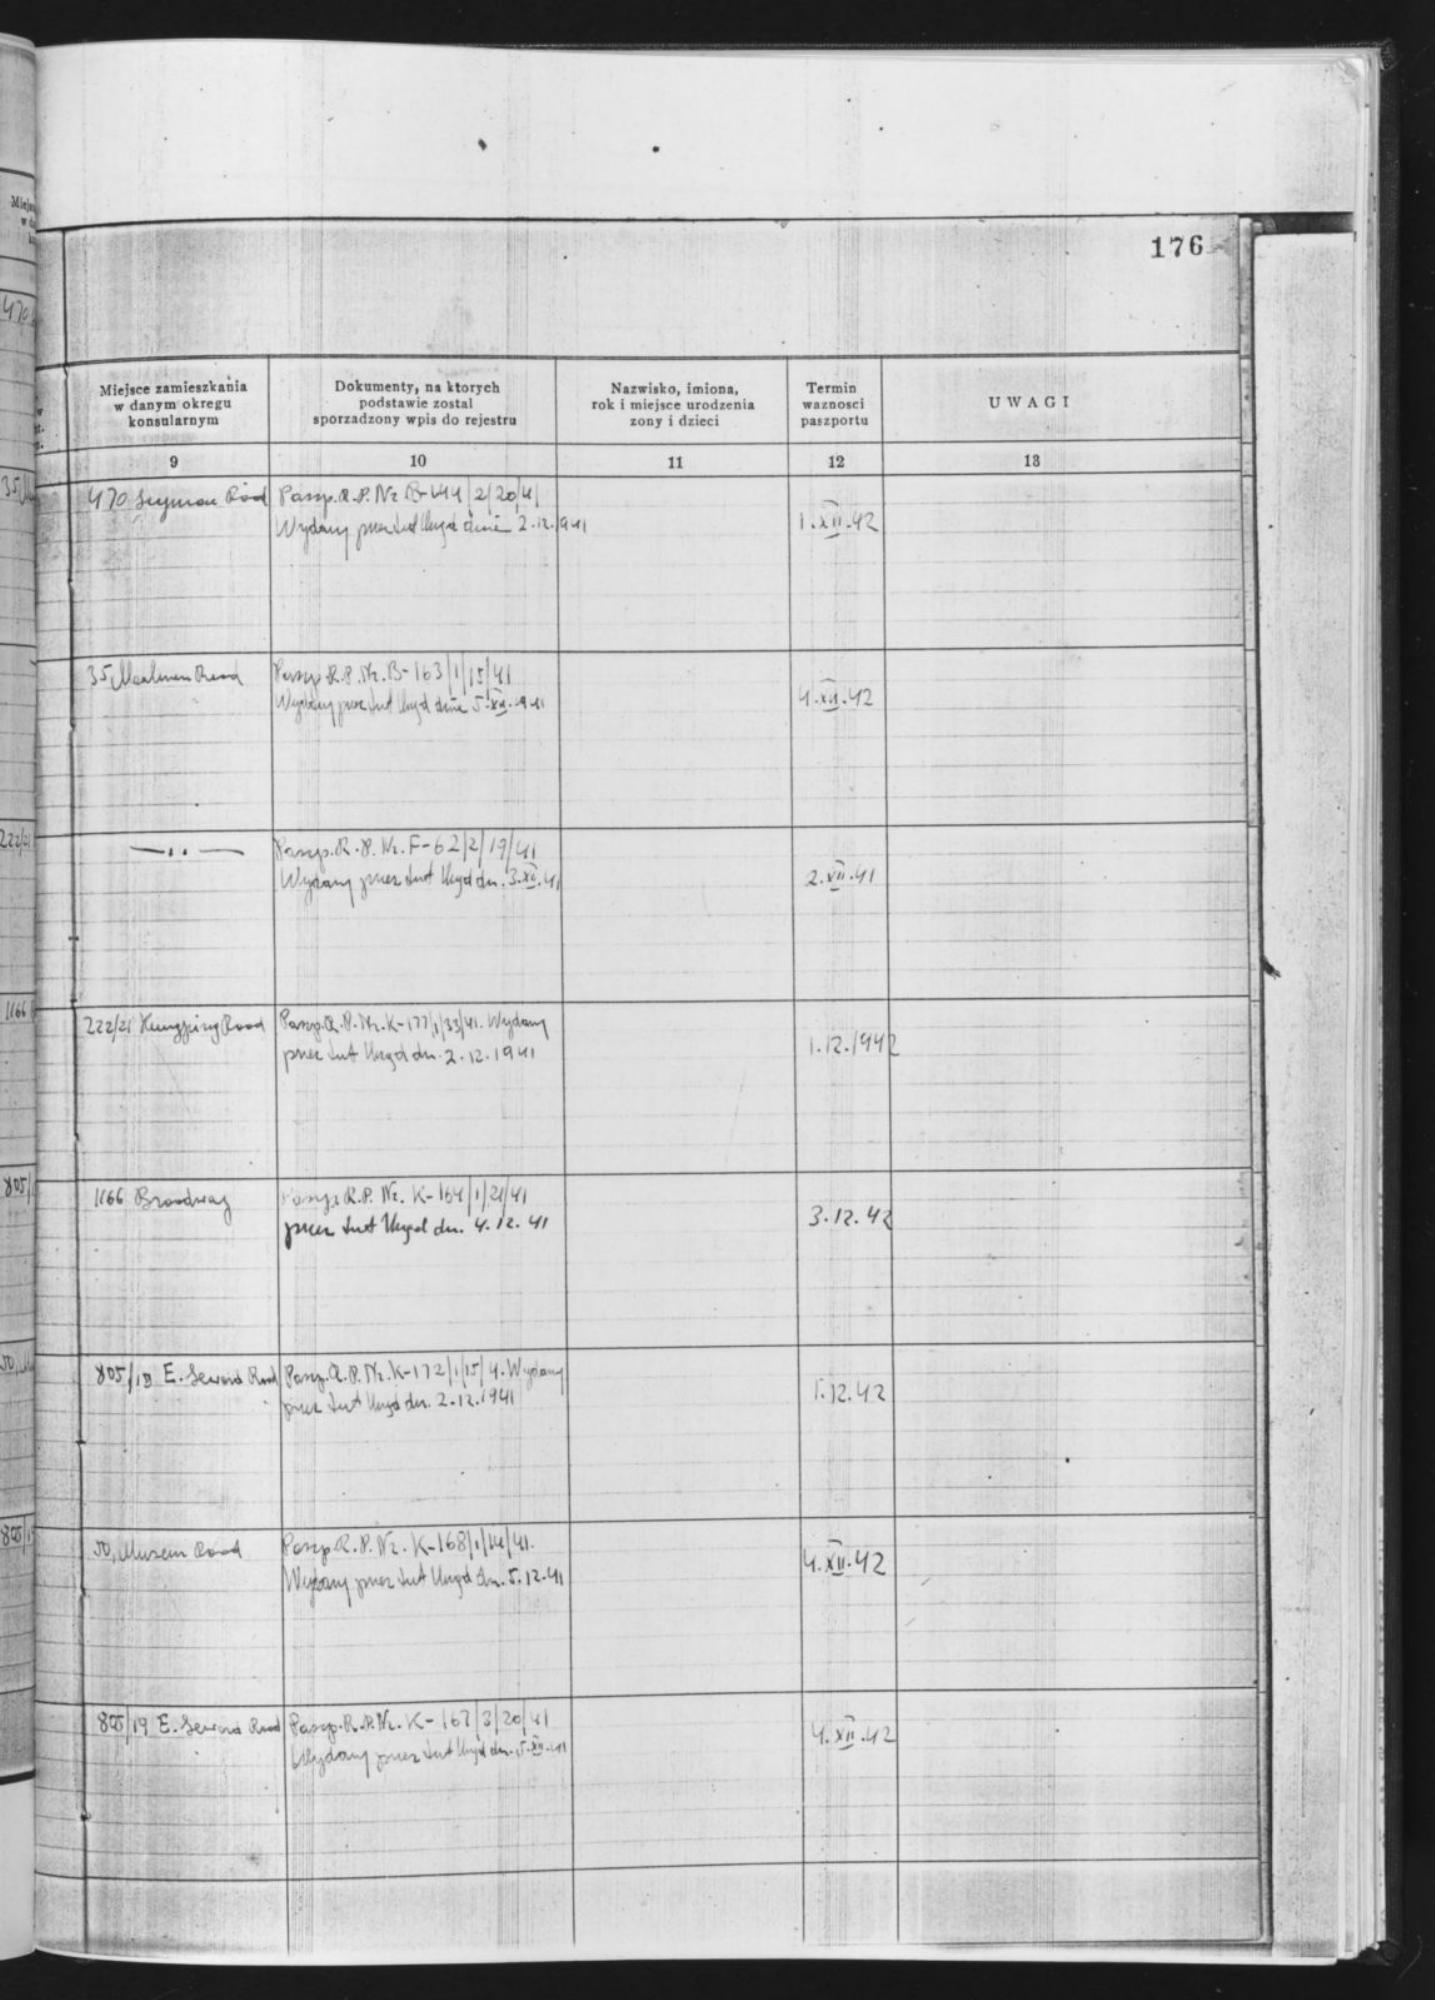 176
Miejsce zamieszkania
w danym okregu
konsularnym
Dokumenty, na ktorych
podstawie zostal
sporzadzony wpis do rejestru
Nazwisko, imiona,
rok i miejsce urodzenia
zony i dzieci
Termin
waznosci
paszportu
UWAGI
9
10
11
12
13
470 Road
Paszp. R.P. Nr. B-144/2/20/41
Wydany przez tut Urząd dnia 2.12.1941
1.XII.42
35, Road
Paszp. R.P. Nr. B-163/1/15/41
Wydany przez tut Urząd dnia 5.XII.1941
4.XII.42
—„—
Paszp. R.P. Nr. F-62/2/19/41
Wydany przez tut Urząd dn. 3.XII.41
2.XII.41
222/21 Kungping Road
Paszp. R.P. Nr. K-177/1/33/41. Wydany
przez tut Urząd dn. 2.12.1941
1.12.1942
1166 Broadway
Paszp. R.P. Nr. K-164/1/21/41
przez tut Urząd dn. 4.12.41
3.12.42
805/19 E. Seward Road
Paszp. R.P. Nr. K-172/1/15/4. Wydany
przez tut Urząd dn. 2.12.1941
1.12.42
50, Museum Road
Paszp. R.P. Nr. K-168/1/14/41.
Wydany przez tut Urząd dn. 5.12.41
4.XII.42
805/19 E. Seward Road
Paszp. R.P. Nr. K-167/3/20/41
Wydany przez tut Urząd dn. 5.XII.41
4.XII.42